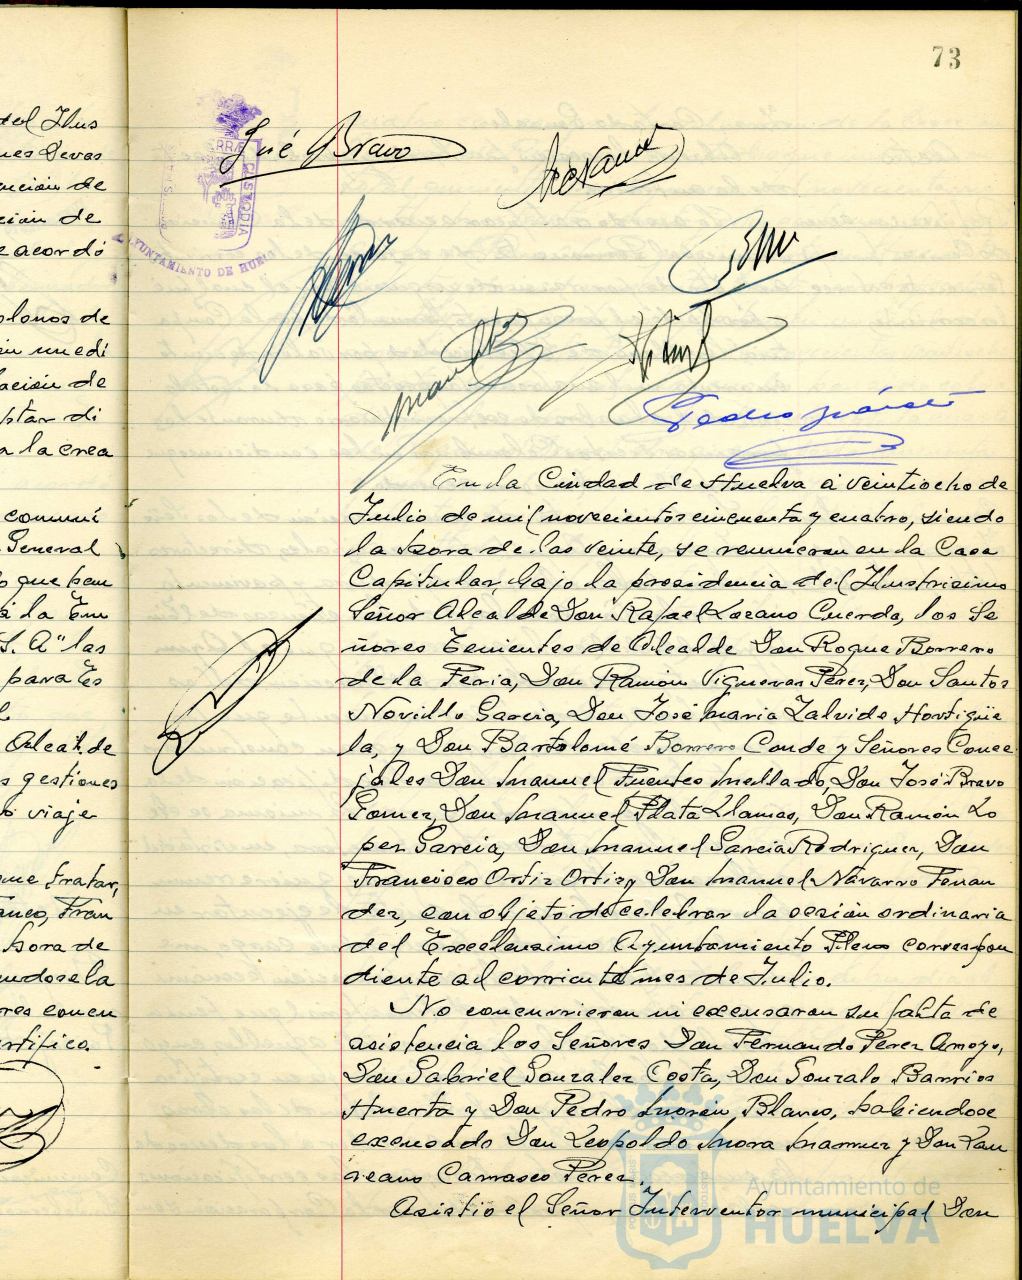 73
del Ilus
nes Devas
ención de
ción de
e acordó
olonos de
in medi
lación de
star di
a la crea
comuni
General
o que han
a la Em
S. A" las
para Es
l
Alcalde
s gestiones
o viaje
me tratar,
anco, Fran
hora de
endose la
res concu
rtifico.
José Bravo
CUSTODIA
AYUNTAMIENTO DE HUELVA
Pedro
En la Ciudad de Huelva a veintiocho de
Julio de mil novecientos cincuenta y cuatro, siendo
la hora de las veinte, se reunieron en la Casa
Capitular, bajo la presidencia del Ilustrisimo
Señor Alcalde Don Rafael Lozano Cuerda, los Se
ñores Tenientes de Alcalde Don Roque Borrero
de la Feria, Don Ramón Vigueras Perez, Don Santos
Novillo Garcia, Don José Maria Zalvide Hortigüe
la, y Don Bartolomé Borrero Conde y Señores Conce
jales Don Manuel Fuentes Mellado, Don José Bravo
Gomez, Don Manuel Plata Llamas, Don Ramón Lo
pez Garcia, Don Manuel Garcia Rodriguez, Don
Francisco Ortiz Ortiz y Don Manuel Navarro Fernan
dez, con objeto de celebrar la sesión ordinaria
del Excelensimo Ayuntamiento Pleno correspon
diente al corriente mes de Julio.
No concurrieron ni excusaron su falta de
asistencia los Señores Don Fernando Perez Amoyo,
Don Gabriel Gonzalez Costa, Don Gonzalo Barrios
Huerta y Don Pedro Morón Blanco, habiendose
excusado Don Leopoldo Mora y Don Lau
reano Carrasco Perez.
Asistio el Señor Interventor municipal Don
Ayuntamiento de
HUELVA